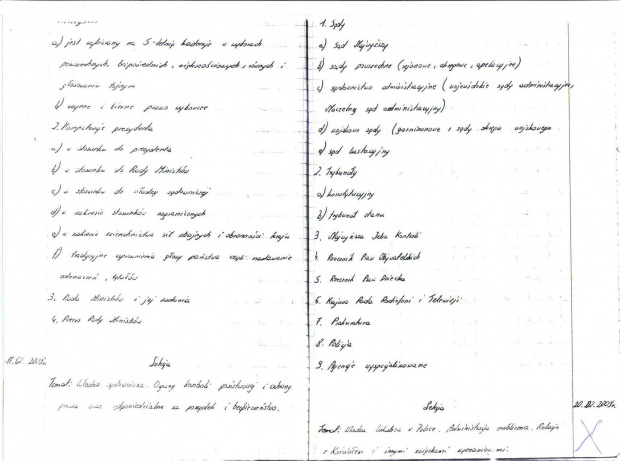 a) jest wybierany na 5-letnią kadencję w wyborach
powszechnych, bezpośrednich, większościowych, równych i
głosowaniu tajnym
b) czynne i bierne prawo wyborcze
2. Kompetencje prezydenta
a) w stosunku do prezydenta
b) w stosunku do Rady Ministrów
c) w stosunku do władzy sądowniczej
d) w zakresie stosunków zagranicznych
e) w zakresie zwierzchnictwa sił zbrojnych i obronności kraju
f) tradycyjne uprawnienia głowy państwa czyli nadawanie
odznaczeń, tytułów
3. Rada Ministrów i jej zadania
4. Prezes Rady Ministrów
Lekcja
Temat: Władza sądownicza. Organy kontroli państwowej i ochrony
prawa oraz odpowiedzialne za porządek i bezpieczeństwo.
1. Sądy
a) Sąd Najwyższy
b) sądy powszechne (rejonowe, okręgowe, apelacyjne)
c) sądownictwo administracyjne (wojewódzkie sądy administracyjne,
Naczelny sąd administracyjny)
d) wojskowe sądy (garnizonowe i sądy okręgu wojskowego
e) sąd lustracyjny
2. Trybunały
a) konstytucyjny
b) trybunał stanu
3. Najwyższa Izba Kontroli
4. Rzecznik Praw Obywatelskich
5. Rzecznik Praw Dziecka
6. Krajowa Rada Radiofonii i Telewizji
7. Prokuratura
8. Policja
9. Agencje wyspecjalizowane
Lekcja
Temat: Władza lokalna w Polsce. Administracja publiczna. Relacje
z Kościołem i innymi związkami wyznaniowymi.